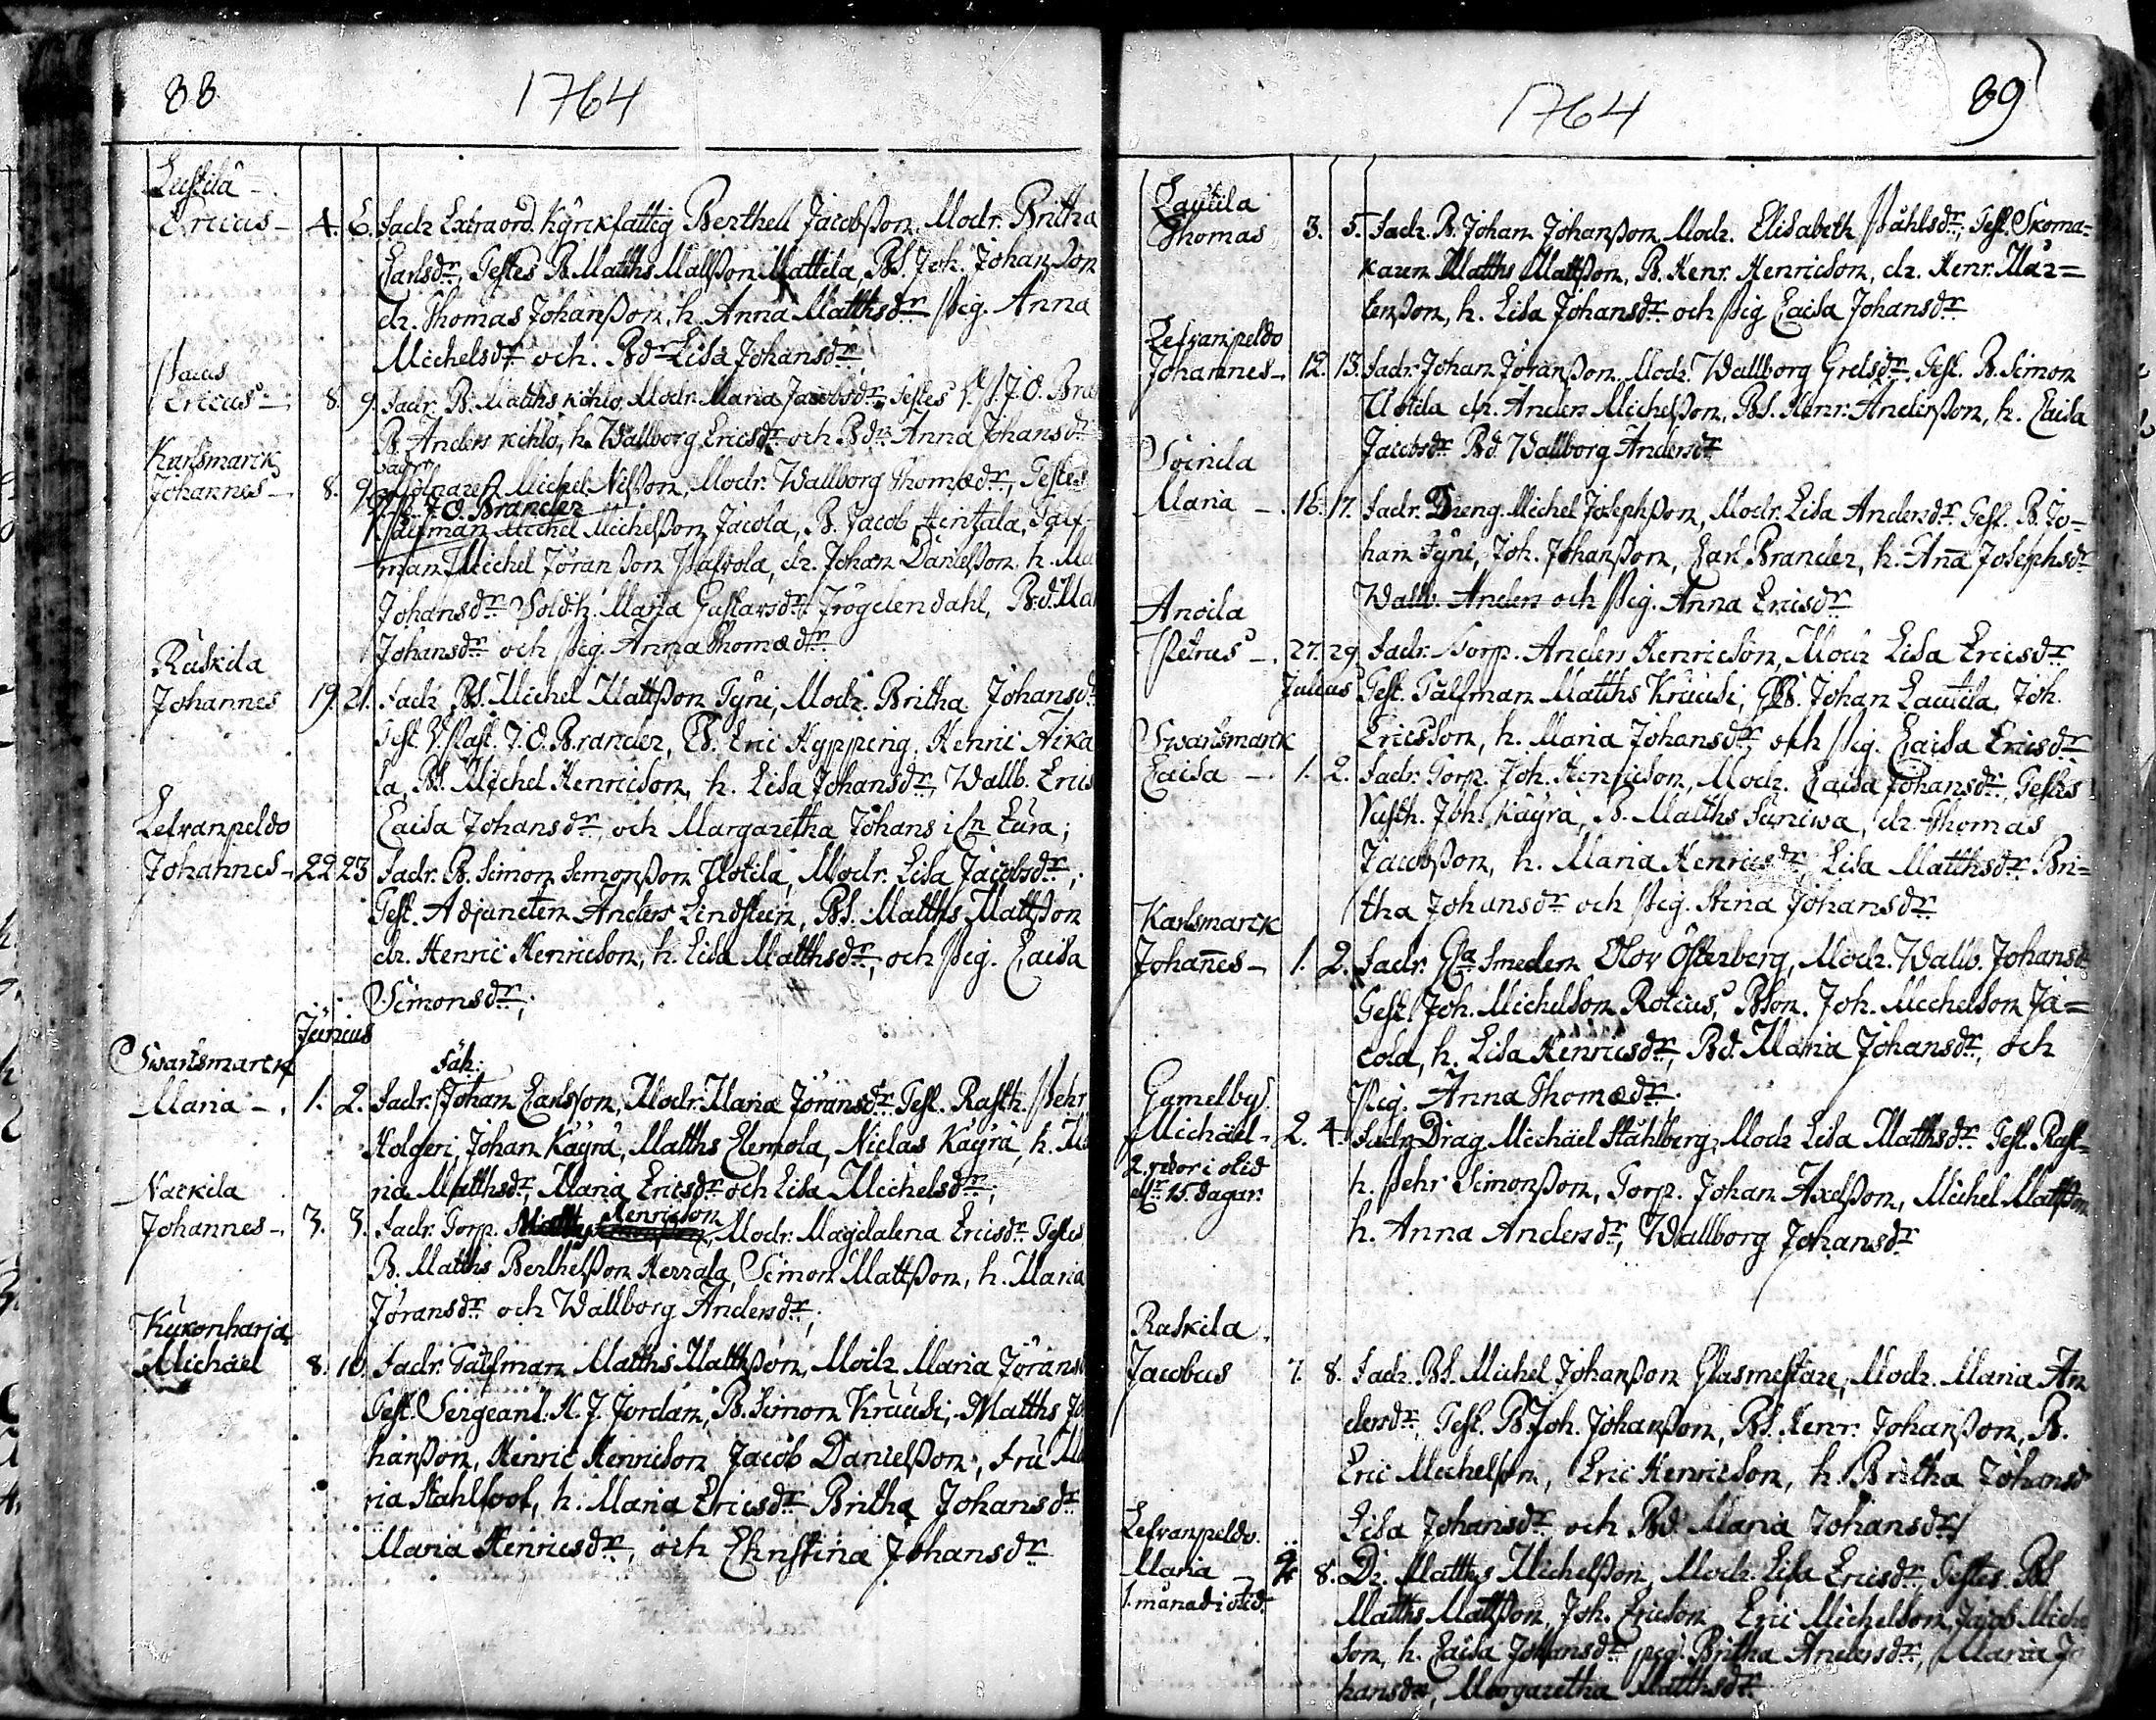 88
1764
Lustila
Ericus - 4. 6. Fadr Extraord. Kyrkfattig Berthell Jacobsson, Modr. Britha
Carlsdr, Testes B. Matths Mattsson Mattila, BS. Joh. Johansson
dr. Thomas Johansson, h. Anna Matthsdr Pig. Anna
Michelsdr och Bdr Lisa Johansdr
Paus
Ericus - 8. 9. Fadr. B. Matths Kihlo, Modr. Maria Jacobsdr, Testes V.P. J.O. Bran
B. Anders Kihlo, h. Wallborg Ericsdr och Bdr Anna Johansdr
Karlsmarck
Johannes - 8. 9. Fadr. Michel Nilsson, Modr. Wallborg Thomædr, Testes
J.O. Brander
Michel Michelsson Jacola, B. Jacob Hintzala, Tolf-
man Michel Jöransson Pafvola, dr. Johan Danielsson h. Ma
Johansdr Sold. h. Maria Gustavsdr Frögelendahl, B:d. Ma
Johansdr och Pig. Anna Thomædr
Raskila
Johannes 19. 21. Fadr BS. Michel Mattsson Tyni, Modr. Britha Johansdr
Test V. Past. J.O. Brander, B. Eric Hypping, Henric Aika
la, BS. Michel Henricson, h. Lisa Johansdr, Wallb. Erics
Caisa Johansdr, och Margaretha Johans i Cn Eura;
Lefvanpeldo
Johannes - 22 23 Fadr. B. Simon Simonsson Uotila, Modr. Lisa Jacobsdr;
Test. Adjuncten Anders Lindsteen, BS. Matths Mattsson
dr. Henric Henricson, h. Lisa Matthsdr, och Pig. Caisa
Simonsdr;
Junius
Swartsmarck
Maria - 1. 2. Fadr. Johan Carlsson, Modr. Maria Jöransdr Test. Rusth. Pehr
Holgeri, Johan Käyrä, Matths Clemola, Niclas Käyrä, h. Ma
ria Matthsdr, Maria Ericsdr och Lisa Michelsdr;
Nackila
Johannes - 3. 3. Fadr. Torp. Matths Henricson, Modr. Magdalena Ericsdr Testes
B. Matths Berthelsson Herrala, Simon Mattsson, h. Maria
Jöransdr och Wallborg Andersdr;
Kukonharja
Michaël 8. 10. Fadr. Tolfman Matths Matthsson, Modr. Maria Jörans
Test. Sergeant. A. J. Jordan, B. Simon Kruusi, Matths Jo
hansson, Henric Henricson Jacob Danielsson, Fru Ma
ria Stahlfoot, h. Maria Ericsdr Britha Johansdr
Maria Henricsdr, och Christina Johansdr
1764
89
Lautila
Thomas 3. 5. Fadr. B. Johan Johansson, Modr. Elisabeth Påhlsdr, Test. Skoma=
karen Matths Mattsson, B. Henr. Henricson, dr. Henr. Mår=
tensson, h. Lisa Johansdr och Pig Caisa Johansdr
Lefvanpeldo
Johannes - 12. 13. Fadr. Johan Jöransson, Modr. Wallborg Grelsdr. Test. B. Simon
Uotila dr. Anders Michelsson, BS. Henr. Andersson, h. Caisa
Jacobsdr Bd. Wallborg Andersdr
Soinila
Maria - 16. 17. Fadr. Dreng Michel Josephsson, Modr. Lisa Andersdr Test. B. Jo-
han Tyni, Joh. Johansson, Carl Brander, h. Anna Josephsdr
Wallb. Anders och Pig. Anna Ericsdr
Anoila
Petrus - 27. 29 Fadr. Torp. Anders Henricson, Modr Lisa Ericsdr
Julius Test. Tålfman Matths Kruusi, B. Johan Lautila, Joh.
Ericsson, h. Maria Johansdr, och Pig. Caisa Ericsdr
Swartsmarck
Caisa - 1. 2. Fadr. Torp. Joh. Henricson, Modr. Caisa Johansdr, Testes
Rusth. Joh. Käyrä, B. Matths Suniwa, dr. Thomas
Jacobsson, h. Maria Henricsdr, Lisa Matthsdr Bri=
tha Johansdr och Pig. Stina Johansdr
Karlsmarck
Johannes - 1. 2. Fadr. Smeden Olov Österberg, Modr. Wallb. Johansd
Test. Joh. Michelson Rotius, BSon. Joh. Michelson Ja=
cola, h. Lisa Henricsdr, Bd. Maria Johansdr, och
Pig. Anna Thomædr
Gamelby
Michäel - 2. 4. Fadr. Drag Michäel Ståhlberg, Modr Lisa Matthsdr Test. Rust-
2. veckor i otid
15. dagar.
h. Pehr Simonsson, Torp. Johan Axelsson, Michel Mattsson
h. Anna Andersdr, Wallborg Johansdr
Raskila
Jacobus 7. 8. Fadr. BS. Michel Johansson Glasmestare, Modr. Maria An
dersdr, Test. B. Joh. Johansson, BS. Henr. Johansson, B.
Eric Michelsson, Eric Henricson, h. Britha Johansd
Lisa Johansdr och Bd. Maria Johansdr
Lefvanpeldo.
Maria - 8. Dr. Matths Michelsson, Modr. Lisa Ericsdr, Testes. BS
1. månad i otid.
Matths Mattsson, Joh. Ericson, Eric Michelson, Jacob Miche
son, h. Caisa Johansdr pig. Britha Andersdr, Maria Jo
hansdr, Margaretha Matthsdr